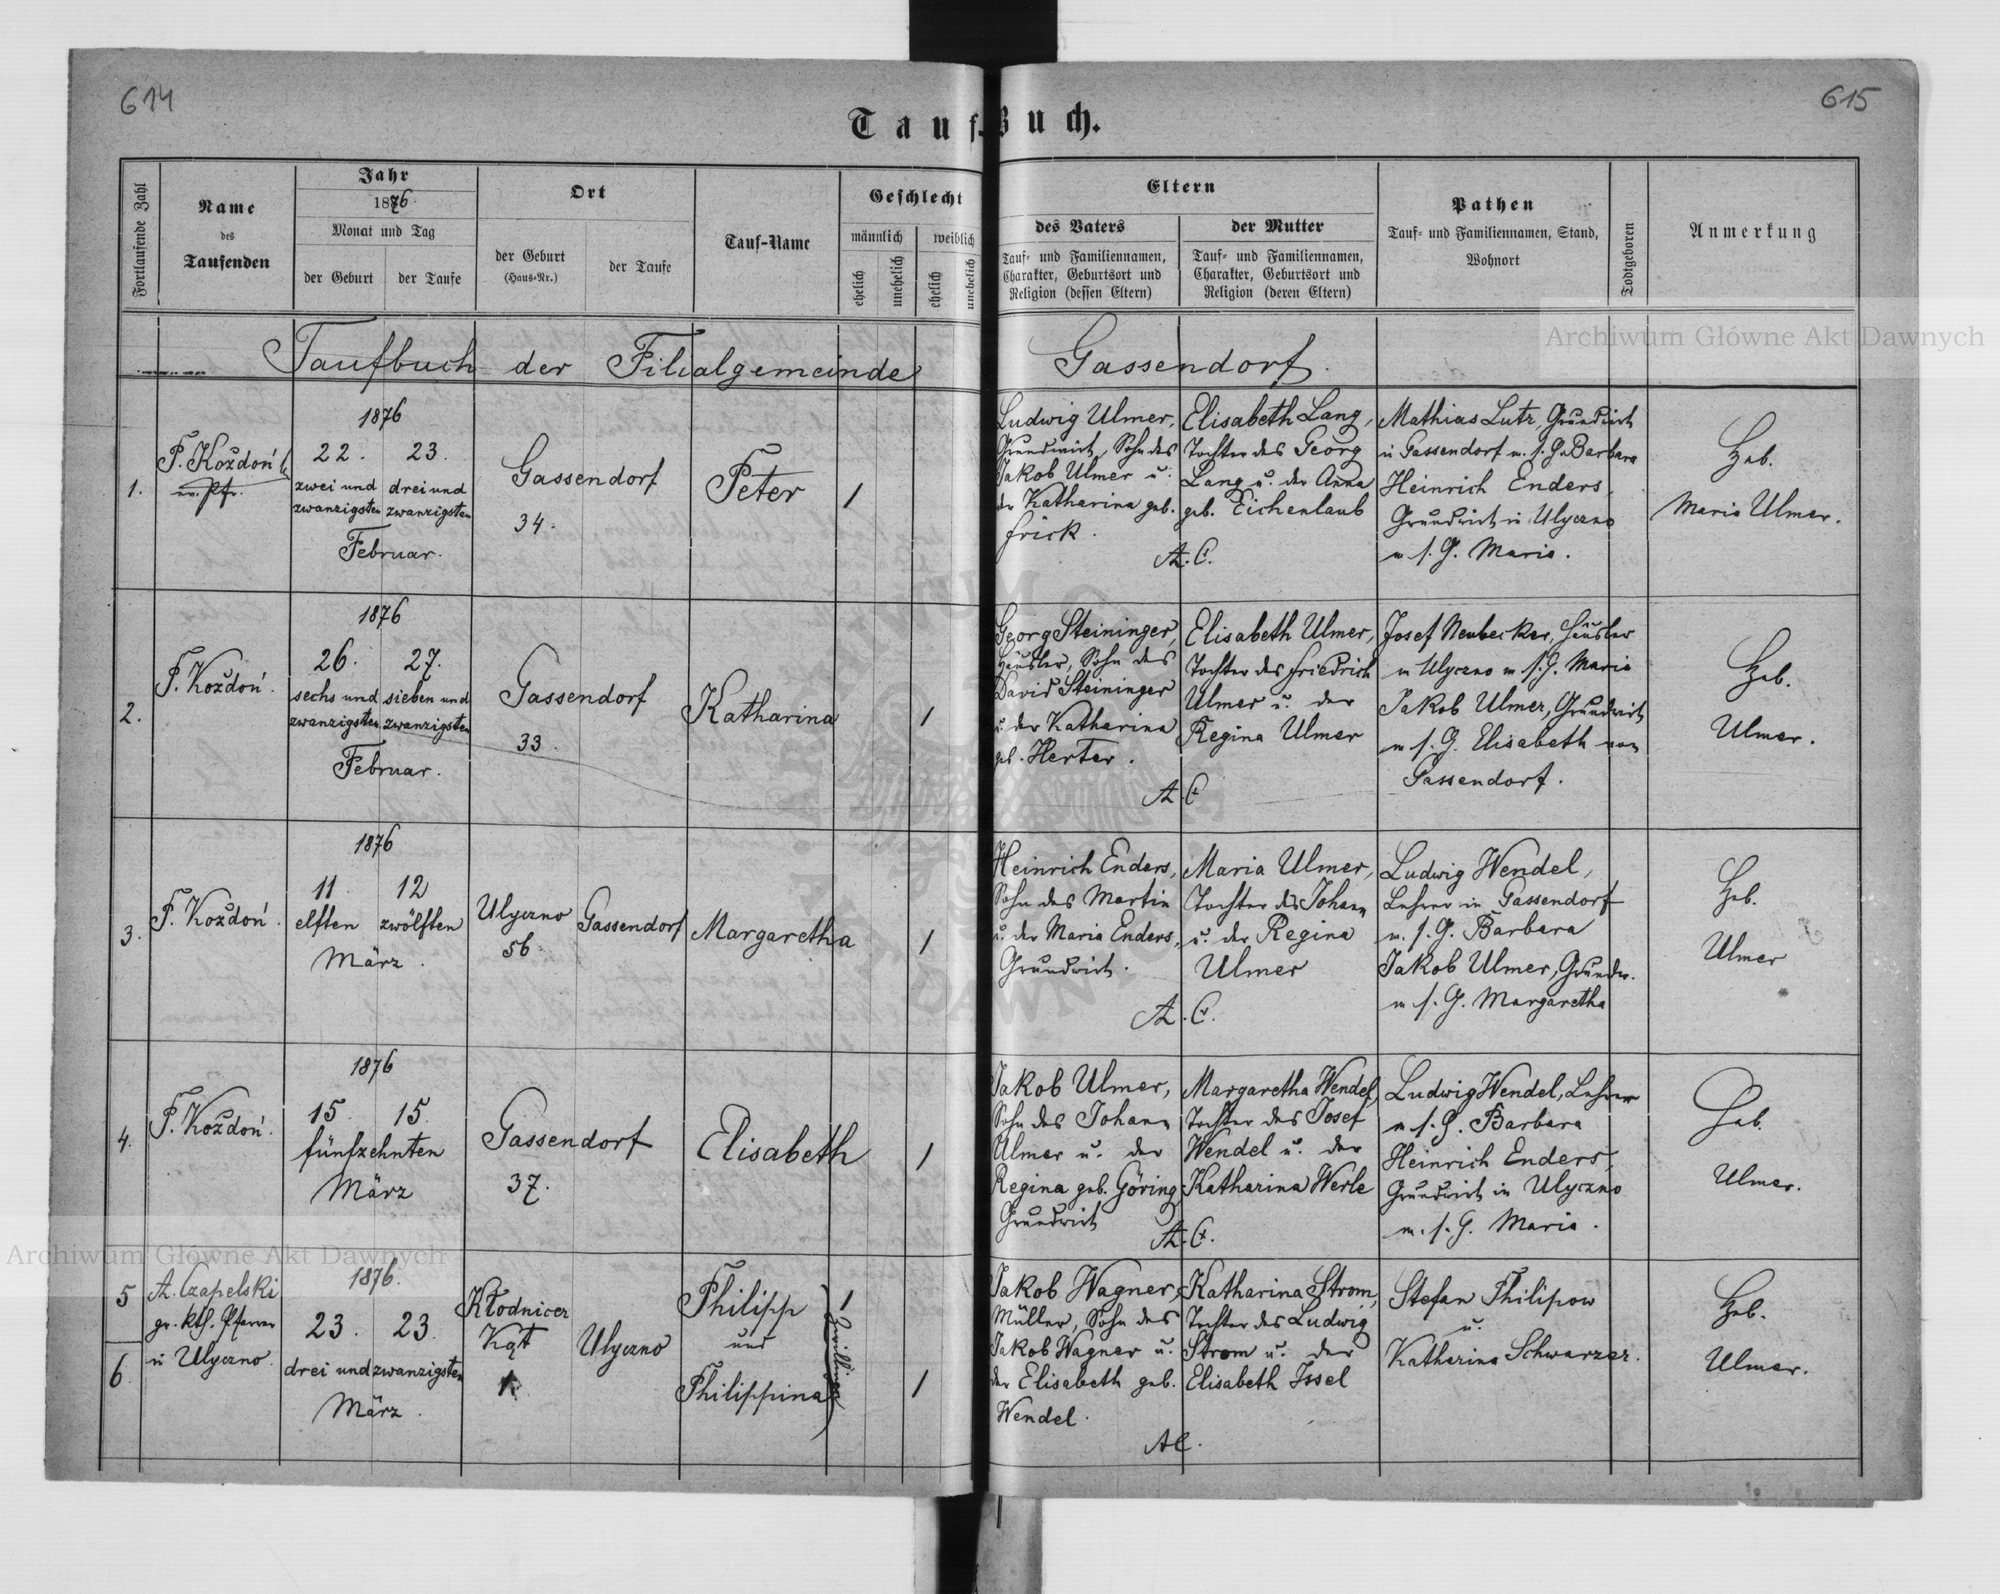 614
615
Tauf-Buch.
Fortlaufende Zahl
Name
des
Taufenden
Jahr
1876.
Monat und Tag
der Geburt
der Taufe
Ort
der Geburt
(Haus-Nr.)
der Taufe
Tauf-Name
Geschlecht
männlich
weiblich
ehelich
unehelich
ehelich
unehelich
Eltern
des Vaters
Tauf- und Familiennamen,
Charakter, Geburtsort und
Religion (dessen Eltern)
der Mutter
Tauf- und Familiennamen,
Charakter, Geburtsort und
Religion (deren Eltern)
Pathen
Tauf- und Familiennamen, Stand,
Wohnort
Todtgeboren
Anmerkung
Archiwum Główne Akt Dawnych
Taufbuch der Filialgemeinde Gassendorf.
1.
F. Kozdoń
ev. Pfr.
1876
22. 23.
zwei und drei und
zwanzigsten zwanzigsten
Februar.
Gassendorf
34.
Peter
1
Ludwig Ulmer,
Grundwirt, Sohn des
Jakob Ulmer u.
der Katharina geb.
Frick.
Elisabeth Lang,
Tochter des Georg
Lang u. der Anna
geb. Eichenlaub
A. C.
Mathias Lutz, Grundwirt
in Gassendorf m. s. G. Barbara
Heinrich Enders,
Grundwirt in Ulyczno
m. s. G. Maria.
Heb.
Maria Ulmer.
2.
F. Kozdoń.
1876
26. 27.
sechs und sieben und
zwanzigsten zwanzigsten
Februar.
Gassendorf
33.
Katharina
1
Georg Steininger,
Häusler, Sohn des
David Steininger
u. der Katharina
geb. Herter.
Elisabeth Ulmer,
Tochter des Friedrich
Ulmer u. der
Regina Ulmer
A. C.
Josef Neubecker, Häusler
in Ulyczno m. s. G. Maria
Jakob Ulmer, Grundwirt
m. s. G. Elisabeth von
Gassendorf.
Heb.
Ulmer.
3.
F. Kozdoń.
1876
11 12
elften zwölften
März.
Ulyczno
56.
Gassendorf
Margaretha
1
Heinrich Enders,
Sohn des Martin
u. der Maria Enders,
Grundwirt.
Maria Ulmer,
Tochter des Johann
u. der Regina
Ulmer
A. C.
Ludwig Wendel,
Lehrer in Gassendorf
m. s. G. Barbara
Jakob Ulmer, Grundw.
m. s. G. Margaretha
Heb.
Ulmer
4.
F. Kozdoń.
1876
15. 15.
fünfzehnten
März
Gassendorf
37.
Elisabeth
1
Jakob Ulmer,
Sohn des Johann
Ulmer u. der
Regina geb. Göring
Grundwirt
Margaretha Wendel,
Tochter des Josef
Wendel u. der
Katharina Werle
A. C.
Ludwig Wendel, Lehrer
m. s. G. Barbara
Heinrich Enders,
Grundwirt in Ulyczno
m. s. G. Maria.
Heb.
Ulmer.
Archiwum Główne Akt Dawnych
5
6
A. Czapelski
gr. kth. Pfarrer
in Ulyczno.
1876.
23. 23.
drei und zwanzigsten
März.
Kłodnicer
Kąt
1.
Ulyczno
Philipp
und
Philippina
Zwillinge
1
1
Jakob Wagner,
Müller, Sohn des
Jakob Wagner u.
der Elisabeth geb.
Wendel.
Katharina Strom,
Tochter des Ludwig
Strom u. der
Elisabeth Issel
AC.
Stefan Philipow
u.
Katharina Schwarzer.
Heb.
Ulmer.